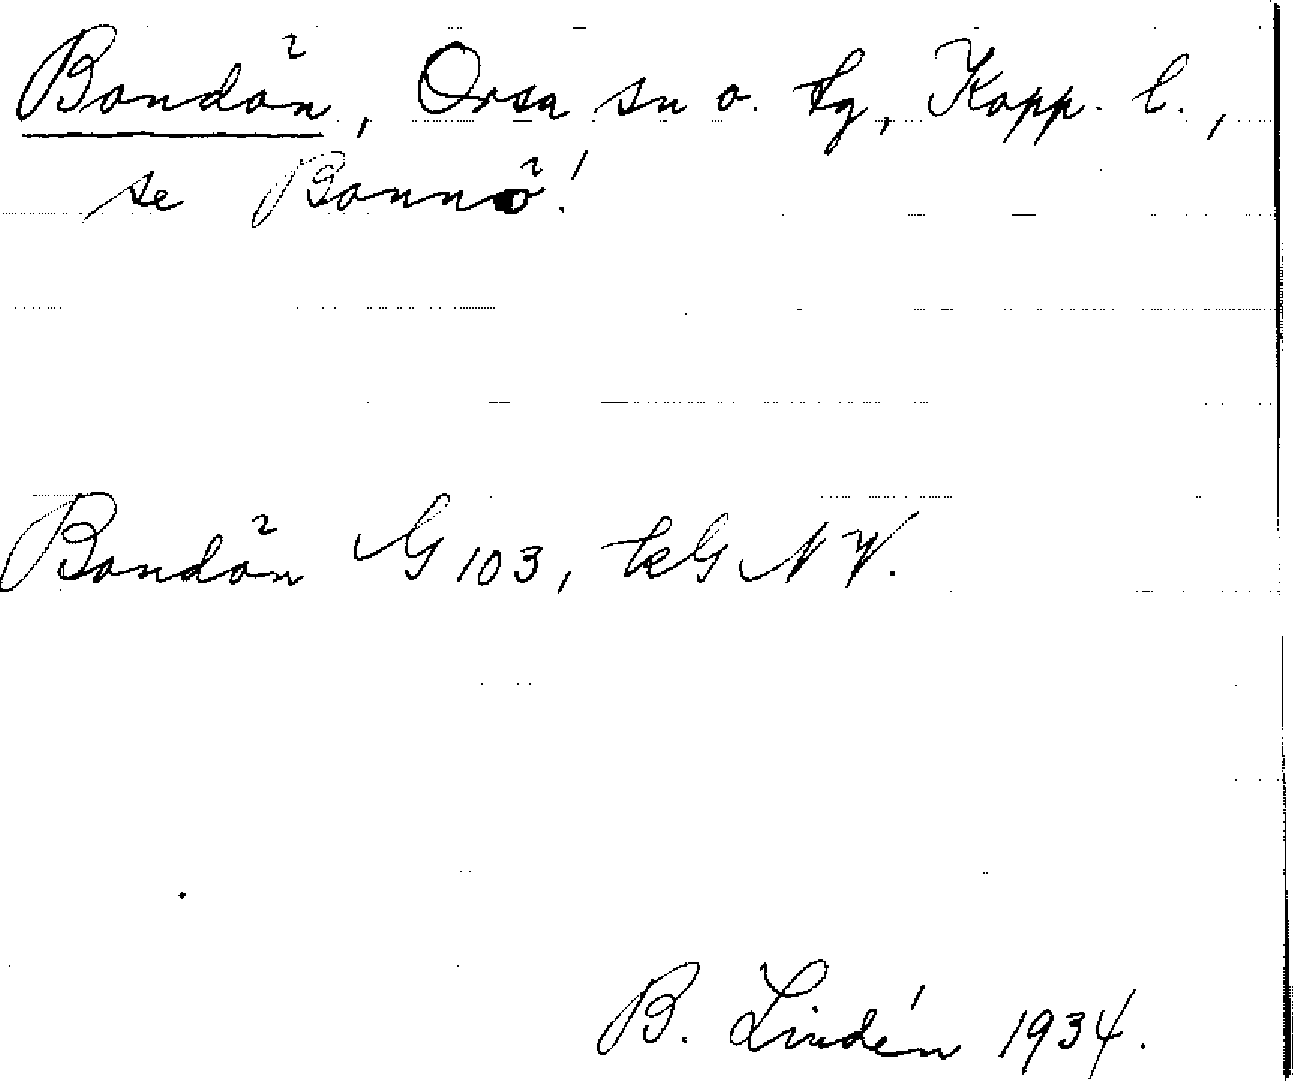 Bondån, Orsa sn o. tg, Kopp. l.,
se Bonnå!
Bondån G 103, kG NV.
B. Lindén 1934.